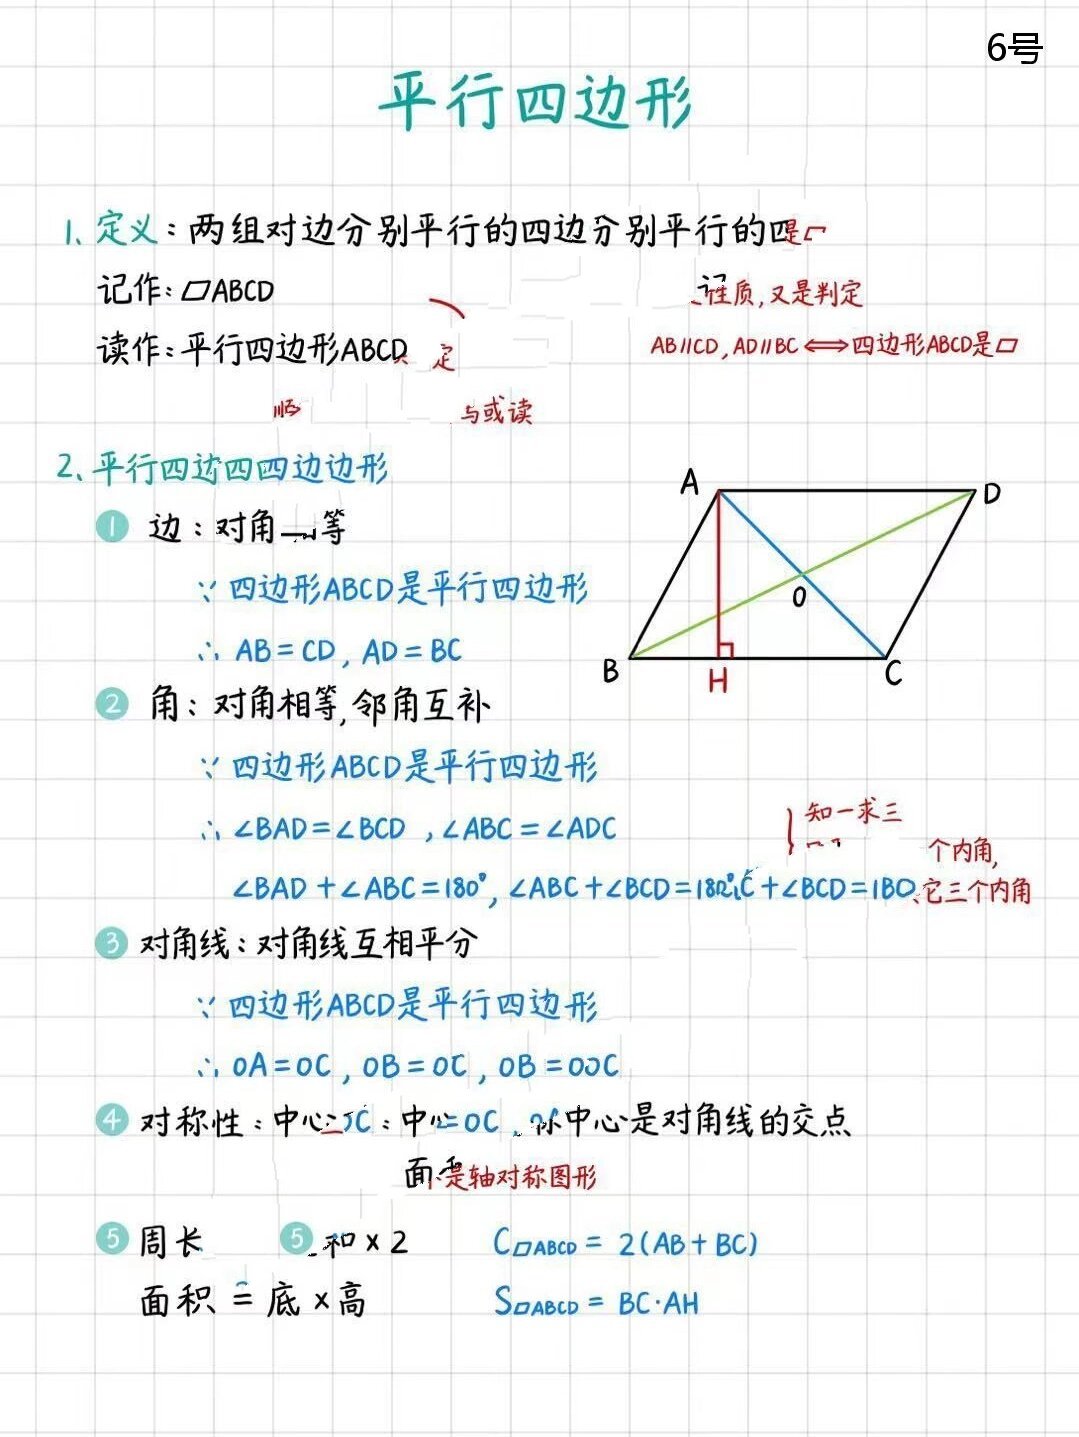 6号
平行四边形
1、定义：两组对边分别平行的四边分别平行的四是▱
记作：▱ABCD
性质，又是判定
读作：平行四边形ABCD 定
AB∥CD，AD∥BC⟺四边形ABCD是▱
顺 与或读
2、平行四边四四边边形
A
D
O
B
H
C
① 边：对角 等
∵ 四边形ABCD是平行四边形
∴ AB=CD, AD=BC
② 角：对角相等,邻角互补
∵ 四边形ABCD是平行四边形
∴ ∠BAD=∠BCD ,∠ABC=∠ADC
知一求三
个内角,
∠BAD+∠ABC=180°, ∠ABC+∠BCD=180° C+∠BCD=180 它三个内角
③ 对角线：对角线互相平分
∵ 四边形ABCD是平行四边形
∴ OA=OC, OB=OC, OB=OOC
④ 对称性：中心 OC：中心=OC 中心是对角线的交点
面 是轴对称图形
⑤ 周长 ⑤ 和×2 C▱ABCD = 2(AB+BC)
面积 = 底×高 S▱ABCD = BC·AH